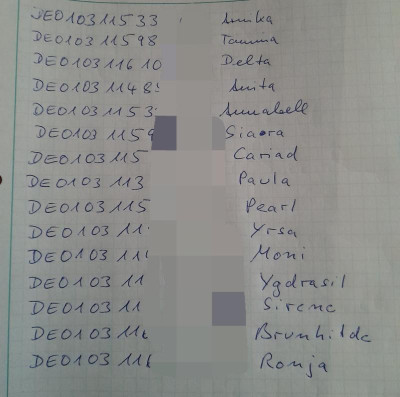 DE0103 115 33 Anika
DE0103 115 98 Tamina
DE0103 116 10 Delta
DE0103 114 8 Anita
DE0103 115 3 Annabell
DE0103 1159
DE0103 115 Cariad
DE0103 113 Paula
DE0103 115 Pearl
DE0103 11 Yrsa
DE0103 11 Moni
DE0103 11 Ygdrasil
DE0103 11 Sirene
DE0103 11 Brunhilde
DE0103 11 Ronja